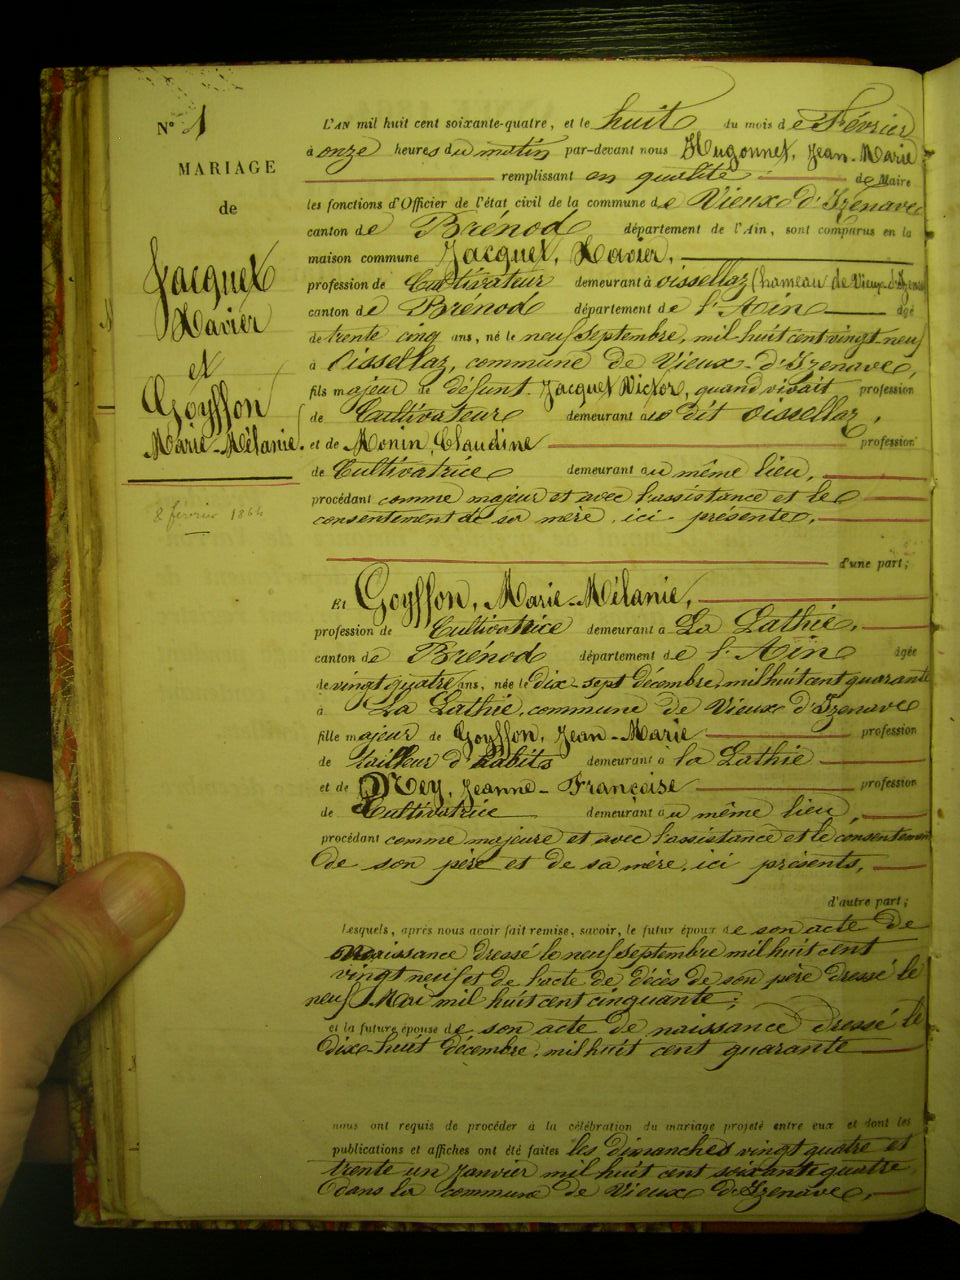 N° 1
MARIAGE
de
Jacquet
Xavier
et
Goyffon
Marie-Mélanie.
8 février 1864
L'AN mil huit cent soixante-quatre, et le huit du mois de Février
à onze heures du matin par-devant nous Hugonnet, Jean-Marie
remplissant en qualité de Maire
les fonctions d'Officier de l'état civil de la commune de Vieux d'Izenave
canton de Brénod département de l'Ain, sont comparus en la
maison commune Jacquet, Xavier,
profession de Cultivateur demeurant à oissellaz (hameau de Vieux-d'Izenave
canton de Brénod département de l'Ain âgé
de trente cinq ans, né le neuf Septembre, mil-huit cent vingt neuf
à Oissellaz, commune de Vieux-d'Izenave,
fils majeur de défunt Jacquet Victor, quand vivait profession
de Cultivateur demeurant au dit oissellaz,
et de Monin, Claudine profession
de Cultivatrice demeurant au même lieu,
procédant comme majeur et avec l'assistance et le
consentement de sa mère, ici présente,
d'une part;
Et Goyffon, Marie-Mélanie,
profession de Cultivatrice demeurant à La Lathie,
canton de Brénod département de l'Ain âgée
de vingt quatre ans, née le dix-sept décembre mil huit cent quarante
à La Lathie, commune de Vieux d'Izenave
fille majeur de Goyffon, Jean-Marie profession
de tailleur d'habits demeurant à la Lathie
et de Rey, Jeanne-Françoise profession
de Cultivatrice demeurant au même lieu
procédant comme majeure et avec l'assistance et le consentement
de son père et de sa mère, ici présents,
d'autre part;
Lesquels, après nous avoir fait remise, savoir, le futur époux de son acte de
naissance dressé le neuf septembre mil huit cent
vingt neuf et de l'acte de décès de son père dressé le
neuf Mai mil huit cent cinquante;
et la future épouse de son acte de naissance dressé le
dix-huit décembre, mil huit cent quarante
nous ont requis de procéder à la célébration du mariage projeté entre eux et dont les
publications et affiches ont été faites les dimanches vingt quatre et
trente un Janvier mil huit cent soixante quatre
dans la commune de Vieux d'Izenave,